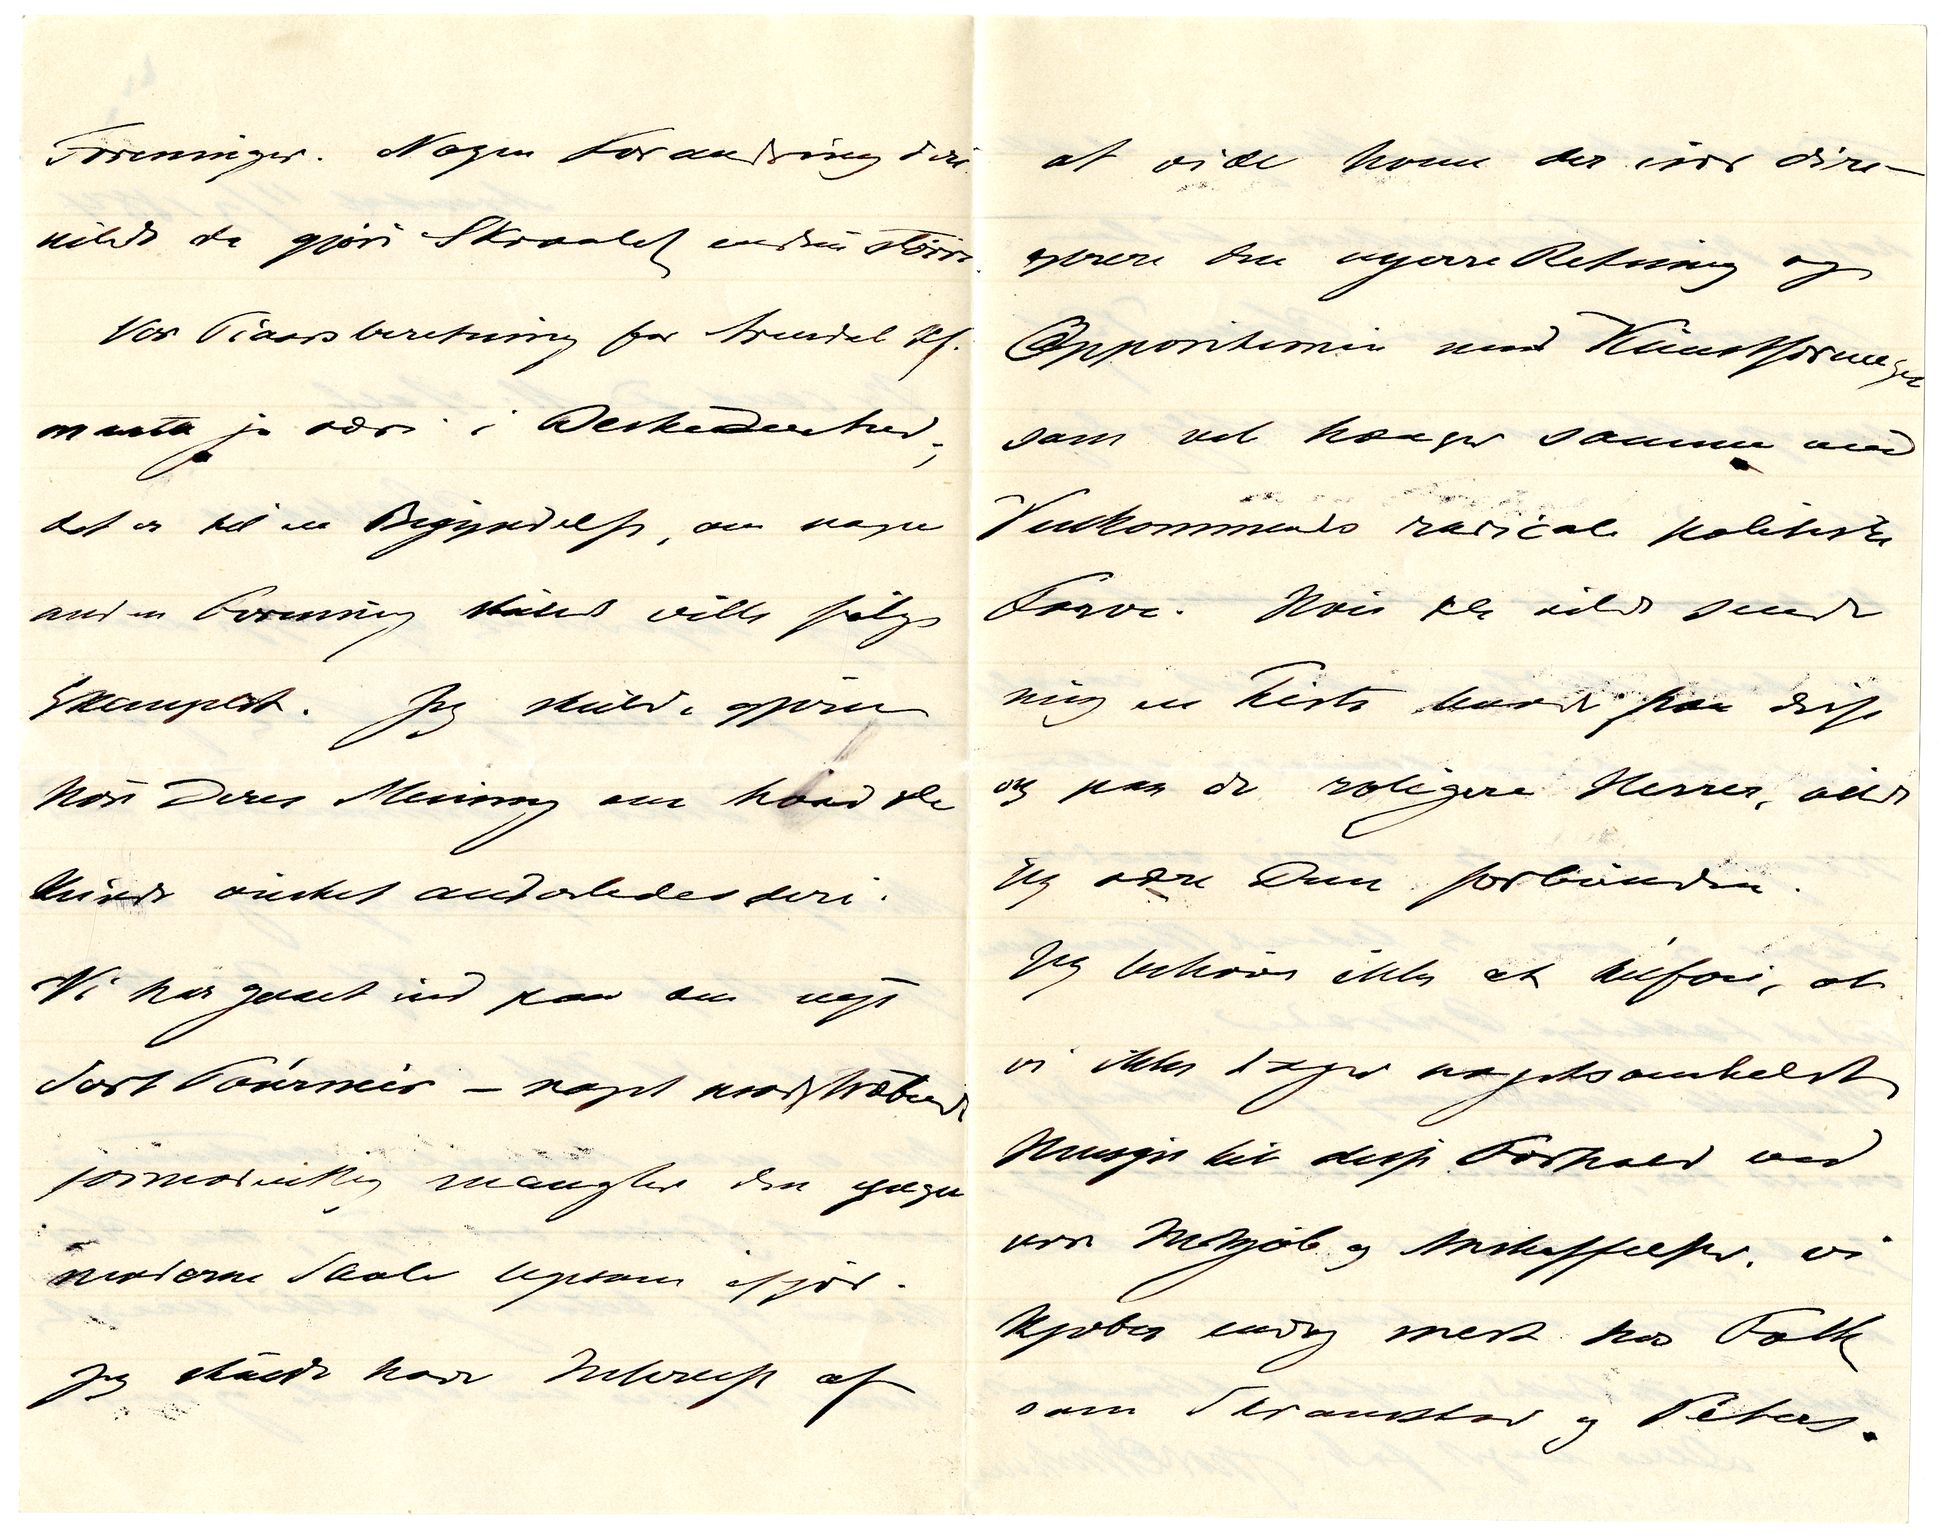 Foreninger. Nogen Forandring deri
vilde da gjøre Skraalet endnu større.
Vor Tiaarsberetning for Arendal Kf.
maatte jo være i Beskedenhed;
det er til en Begyndelse, om nogen
anden Forening skulde ville følge
Exemplet. Jeg skulde gjerne
høre Deres Mening om hvad De
kunde ønsket anderledes deri.
Vi har gaaet ind paa en nyt
Sort Fournir — noget modstræbende
mangler den yngre
moderne Skole ligesom ifjor.
Jeg skulde have Interesse af
at vide hvem der især diri-
gerere den nyere Retning og
Oppositionen mod Kunstforeningen
som vel hænger sammen med
Vedkommendes radicale politiske
Farve. Hvis De vilde sende
mig en Liste baade paa disse
og paa de roligere Herrer, vilde
jeg være Dem forbunden.
Jeg behøver ikke at tilføie, at
vi ikke tager nogetsomhelst
Hensyn til disse Forhold ved
vore Indkjøb og Anskaffelser. vi
kjøber endog mest hos Folk
som Skramstad og Peters.